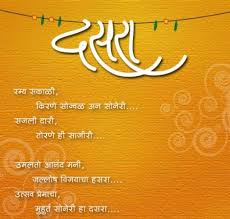 दसरा
रम्य सकाळी,
किरणे सोज्वळ अन सोनेरी....
सजली दारी,
तोरणे ही साजीरी....
उमलतो आनंद मनी,
जल्लोष विजयाचा हसरा.....
उत्सव प्रेमाचा,
मुहूर्त सोनेरी हा दसरा....